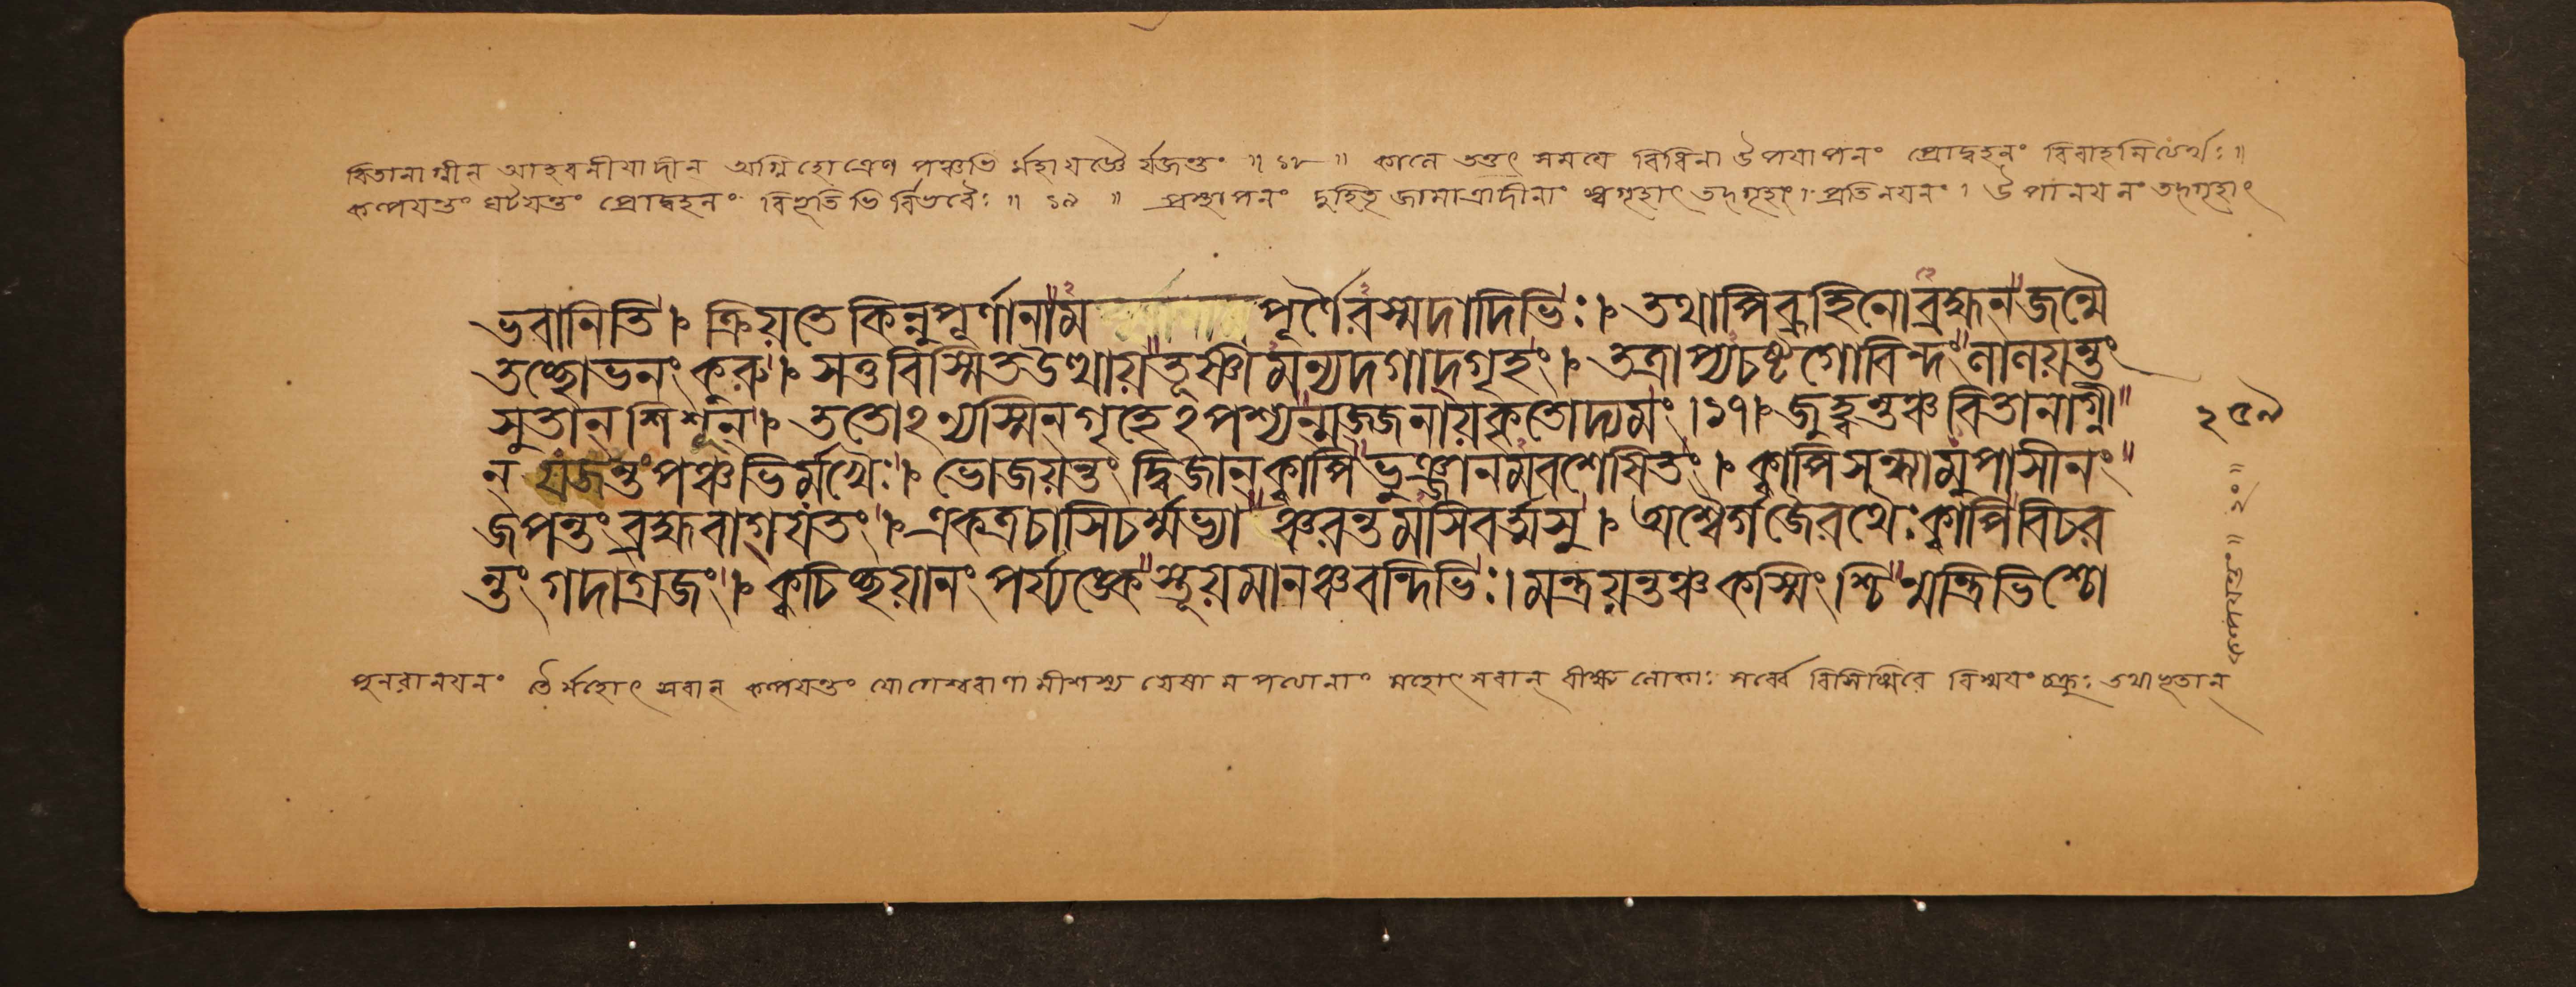 বিতানাগ্নীন্ আহবনীযাদীন্ অগ্নিহোত্রেণ পঞ্চভি র্মহাযজ্ঞৈ র্যজন্তং ॥ ১৮ ॥ কালে তত্তৎ সময়ে বিধিনা উপযাপনং প্রোদ্বহনং বিবাহমিত্যর্থঃ॥
কল্পযন্তং ঘটযন্তং প্রোদ্বহনং বিহুতিভি র্বিভবৈঃ ॥ ১৯ ॥ প্রস্থাপনং দুহিতৃ জামাত্রাদীনাং স্বগৃহাৎ তদ্গৃহং। প্রতিনযনং। উপানযনং তদ্গৃহাৎ
ভবানিতি। ক্রিয়তে কিন্নুপূর্ণানাম পূর্ণৈরস্মদাদিভিঃ। তথাপি ব্রূহিনো ব্রহ্মন্ জন্মৈ
তচ্ছোভনং কুরু। সতু বিস্মিত উত্থায় তূষ্ণীমন্যদগাদ্গৃহং। তত্রাপ্যচষ্ট গোবিন্দং লালয়ন্তং
সুতান্ শিশূন্। ততোঽন্যস্মিন গৃহেঽপশ্যন্মজ্জনায় কৃতোদ্যমং।১৭। জুহ্বন্তঞ্চ বিতানাগ্নী
ন্ যজন্তং পঞ্চভির্মখৈঃ। ভোজয়ন্তং দ্বিজান্ ক্বাপি ভুঞ্জানমবশেষিতং। ক্বাপি সন্ধ্যামুপাসীনং
জপন্তং ব্রহ্ম বাগ্যতং। একত্র চাসিচর্ম্মভ্যা ঞ্চরন্তমসিবর্ত্মসু। অশ্বৈর্গজৈ রথৈঃ ক্বাপি বিচর
ন্তং গদাগ্রজং। ক্বচিচ্ছয়ানং পর্য্যঙ্কে স্তূয়মানঞ্চ বন্দিভিঃ। মন্ত্রয়ন্তঞ্চ কস্মিংশ্চি ন্মন্ত্রিভিশ্চো
২৫৯
পুনরানযনং তৈ র্মহোৎসবান্ কল্পযন্তং যোগেশ্বরাণামীশস্য যেষামপত্যানাং মহোৎসবান্ বীক্ষ্য লোকাঃ সর্ব্বে বিসিস্মিরে বিস্ময়ং চক্রুঃ তথাভূতান্
কল্পযন্তং॥ ২০॥